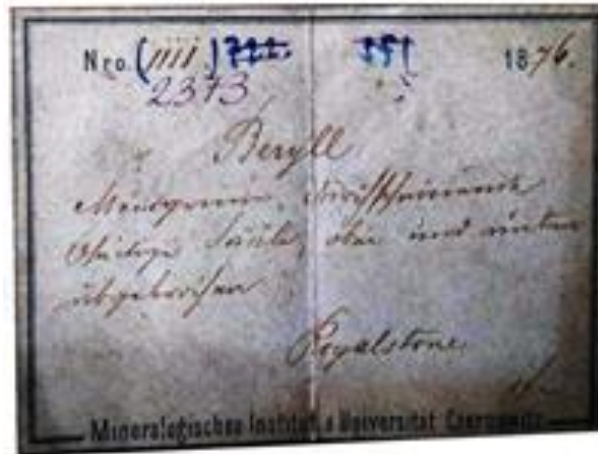 Nro. (1111.) 722. 551 1876.
2373
Beryll
Meergrüne, durchscheinende
6seitige Säule, oben und unten
abgebrochen
Royalstone
Mineralogisches Institut d. Universität Czernowitz